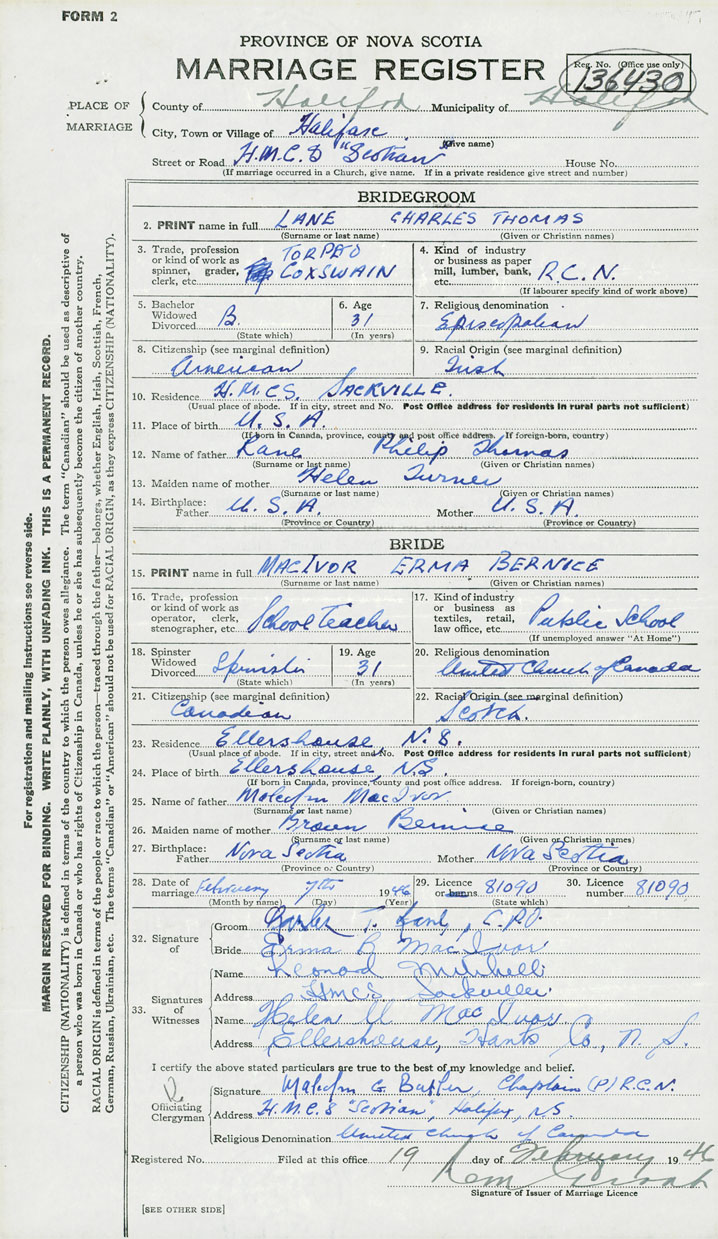 FORM 2
PROVINCE OF NOVA SCOTIA
MARRIAGE REGISTER
Reg. No. (Office use only)
136430
PLACE OF MARRIAGE
County of Halifax Municipality of Halifax
City, Town or Village of Halifax
(Give name)
Street or Road H.M.C.S "Scotian" House No.
(If marriage occurred in a Church, give name. If in a private residence give street and number)
BRIDEGROOM
2. PRINT name in full LANE CHARLES THOMAS
(Surname or last name) (Given or Christian names)
3. Trade, profession or kind of work as spinner, grader, clerk, etc. TORPEDO COXSWAIN
4. Kind of industry or business as paper mill, lumber, bank, etc. R.C.N.
(If labourer specify kind of work above)
5. Bachelor Widowed Divorced B.
(State which)
6. Age 31
(In years)
7. Religious denomination
Episcopalian
8. Citizenship (see marginal definition)
American
9. Racial Origin (see marginal definition)
Irish
10. Residence H.M.C.S. SACKVILLE.
(Usual place of abode. If in city, street and No. Post Office address for residents in rural parts not sufficient)
11. Place of birth U.S.A.
(If born in Canada, province, county and post office address. If foreign-born, country)
12. Name of father Lane Philip Thomas
(Surname or last name) (Given or Christian names)
13. Maiden name of mother Helen Turner
(Surname or last name) (Given or Christian names)
14. Birthplace: Father U.S.A. Mother U.S.A.
(Province or Country) (Province or Country)
BRIDE
15. PRINT name in full MACIVOR ERMA BERNICE
(Surname or last name) (Given or Christian names)
16. Trade, profession or kind of work as operator, clerk, stenographer, etc. School Teacher
17. Kind of industry or business as textiles, retail, law office, etc. Public School
(If unemployed answer "At Home")
18. Spinster Widowed Divorced Spinster
(State which)
19. Age 31
(In years)
20. Religious denomination
United Church of Canada
21. Citizenship (see marginal definition)
Canadian
22. Racial Origin (see marginal definition)
Scotch.
23. Residence Ellershouse N.S.
(Usual place of abode. If in city, street and No. Post Office address for residents in rural parts not sufficient)
24. Place of birth Ellershouse, N.S.
(If born in Canada, province, county and post office address. If foreign-born, country)
25. Name of father Malcolm MacIvor
(Surname or last name) (Given or Christian names)
26. Maiden name of mother Brown Bernice
(Surname or last name) (Given or Christian names)
27. Birthplace: Father Nova Scotia Mother Nova Scotia
(Province or Country) (Province or Country)
28. Date of marriage February 7th 1946
(Month by name) (Day) (Year)
29. Licence or banns 81090
(State which)
30. Licence number 81090
32. Signature of
Groom Charles T. Lane, C.P.O.
Bride Erma B MacIvor
33. Signatures of Witnesses
Name Leonard Mitchell
Address HMCS Sackville
Name Helen U MacIvor
Address Ellershouse, Hants Co., N.S.
I certify the above stated particulars are true to the best of my knowledge and belief.
Officiating Clergyman
Signature Malcolm G Butler, Chaplain (P) R.C.N.
Address H.M.C.S "Scotian", Halifax, N.S.
Religious Denomination United Church of Canada
Registered No. Filed at this office 19 day of February 1946
Signature of Issuer of Marriage Licence
[SEE OTHER SIDE]
For registration and mailing instructions see reverse side.
MARGIN RESERVED FOR BINDING. WRITE PLAINLY, WITH UNFADING INK. THIS IS A PERMANENT RECORD.
CITIZENSHIP (NATIONALITY) is defined in terms of the country to which the person owes allegiance. The term "Canadian" should be used as descriptive of
a person who was born in Canada or who has rights of Citizenship in Canada, unless he or she has subsequently become the citizen of another country.
RACIAL ORIGIN is defined in terms of the people or race to which the person—traced through the father—belongs, whether English, Irish, Scottish, French,
German, Russian, Ukrainian, etc. The terms "Canadian" or "American" should not be used for RACIAL ORIGIN, as they express CITIZENSHIP (NATIONALITY).